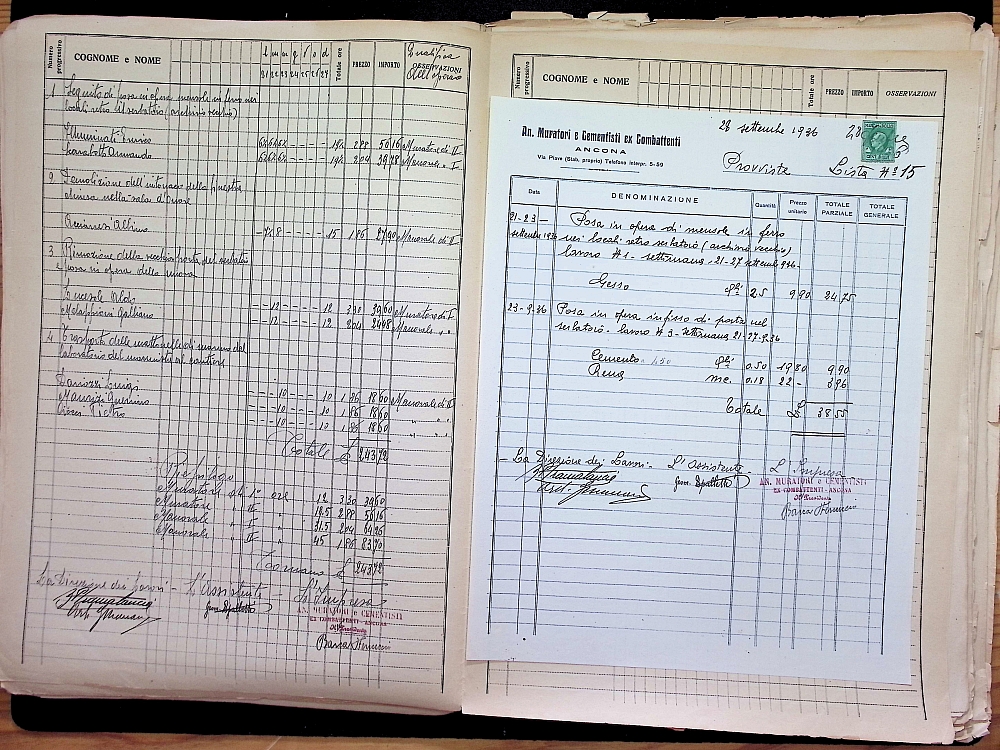 Numero progressivo COGNOME e NOME l m m g v s d Totale ore PREZZO IMPORTO OSSERVAZIONI
21 22 23 24 25 26 27 Qualifica dell'operaio
1 Seguito di posa in opera mensole in ferro nei
locali retro il serbatoio (archivio vecchio)
Illuminati Enrico 19½ 2.88 56 16 Muratore di II
Armando 19½ 2.04 39 78 Manovale " I
2 Demolizione dell'intonaco della finestra
chiusa nella sala d'onore
Albino - 7 8 15 1.86 27 90 Manovale di II
3 Rimozione della vecchia porta del serbatoio
e posa in opera della nuova
Aldo - - 12 - - - - 12 3.30 39 60 Muratore di I
Galliano - - 12 - - - - 12 2.04 24 48 Manovale " "
4 Trasporto delle mattonelle di marmo dal
laboratorio del marmista al cantiere
Luigi - - - 10 - - - 10 1.86 18 60 Manovale di II
Guerrino - - - 10 - - - 10 1.86 18 60 " "
Pietro - - - 10 - - - 10 1.86 18 60 " "
Totale £ 243 72
Riepilogo
Muratore di I° ore 12 3.30 39 60
Muratore " II " 19.5 2.88 56 16
Manovale " I " 31.5 2.04 64 26
Manovale " II " 45 1.86 83 70
Tornano £ 243 72
La Direzione dei Lavori - L'Assistente - L'Impresa
AN. MURATORI e CEMENTISTI
EX COMBATTENTI - ANCONA
Il Presidente
Numero progressivo COGNOME e NOME Totale ore PREZZO IMPORTO OSSERVAZIONI
An. Muratori e Cementisti ex Combattenti
ANCONA
Via Piave (Stab. proprio) Telefono interpr. 5-59
28 settembre 1936
Provviste Lista N° 15
Data DENOMINAZIONE Quantità Prezzo unitario TOTALE PARZIALE TOTALE GENERALE
21-23- Posa in opera di mensole in ferro
settembre 1936 nei locali retro serbatoio (archivio vecchio)
lavoro N 1 - settimana, 21-27 settembre 936-
Gesso Qli 2.5 9.90 24.75
23-9.36 Posa in opera infisso di porta nel
serbatoio - lavoro N 3 - settimana 21-27.9.36
Cemento 450 Qli 0.50 19.80 9.90
Rena mc. 0.18 22 - 3.96
Totale £ 38 55
- La Direzione dei Lavori - L'Assistente - L'Impresa
AN. MURATORI e CEMENTISTI
EX COMBATTENTI - ANCONA
Il Presidente